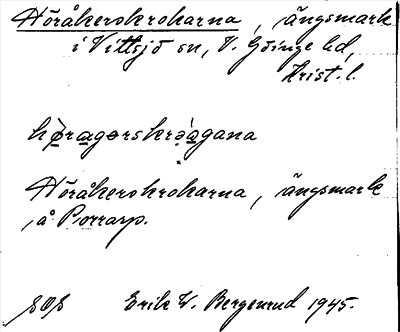 Höråkerskrokarna, ängsmark
i Vittsjö sn, V. Göinge hd,
Krist. l.
hø̀ragərskrə̀agana
Höråkerskrokarna, ängsmark
å Porrarp.
Erik W. Bergenrud 1945.